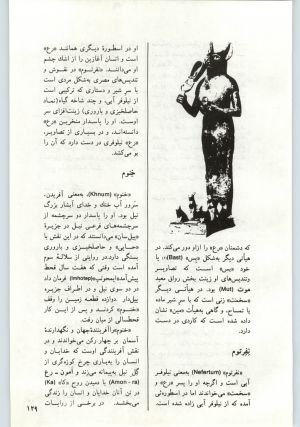 که دشمنان «رع» را ازاو دور می‌کند. در
هیأتی دیگر به‌شکل «بس» (Bast)، یا
خود «بس» است، که تصاویر
وتندیس‌های او زینت بخش روی معبد
موت (Mut) بود. در هیأتی دیگر
«سخمت» زنی است که با سر شیر ماده
یا تمساح، و گاهی بهیأت «مین» نشان
داده شده است که کاردی در دست
دارد.
نفرتوم
«نفرتوم» (Nefertum) به‌معنی نیلوفر
آبی است و اگرچه او را پسر «رع» و
«سخمت» می‌خوانند اما در اسطوره‌ئی
آمده که از نیلوفر آبی زاده شده است.
او در اسطورهٔ دیگری همانند «رع»
است و انسان آغازین را از اشک چشم
او می‌دانند. «نفرتوم» در نقوش و
تندیس‌های مصری به‌شکل مردی است
با سر شیر و دستاری که ترکیبی است
از نیلوفر آبی، و چند شاخه گیاه (نماد
حاصلخیزی و باروری) زینت‌افزای سر
اوست. او را پاسدار منخرین «رع»
دانسته‌اند، و در بسیاری از تصاویر،
«رع» نیلوفری در دست دارد که آن را
بو می‌کشد.
خنوم
«خنوم» (Khnum)، به‌معنی آفریدن،
سرور آب خنک و خدای آبشار بزرگ
نیل بود. او را پاسدار دو سرچشمه از
سرچشمه‌های فرعی نیل در جزیرهٔ
«بیل‌سان» می‌دانستند که در این نقش با
«حسابی» و حاصلخیزی و باروری
بستگی دارد. در روایتی از سلالهٔ سوم
آمده است وقتی که هفت سال قحط
پیش‌آمد «ایمحوتپ» (Inhotep) فرمان داد
در دو سوی نیل و در اطراف جزیره
بیل‌دار دوازده قطعه زمین را وقف
«خنوم» کردند و پس از این کار
قحط‌سالی از میان رفت.
«خنوم» را آفرینندهٔ جهان و نگهدارندهٔ
آسمان بر چهار رکن می‌خواندند و در
نقش آفرینندگی اوست که خدایان و
انسان را به‌یاری چرخ کوزه‌گری از
گل نیل به‌پیمانه می‌زند و آمون ـ رع
(Amon - ra) با دمیدن روح «کا» (Ka)
در تن آنان خدایان و انسان را زندگی
می‌بخشد. در برخی از روایات
۱۲۹